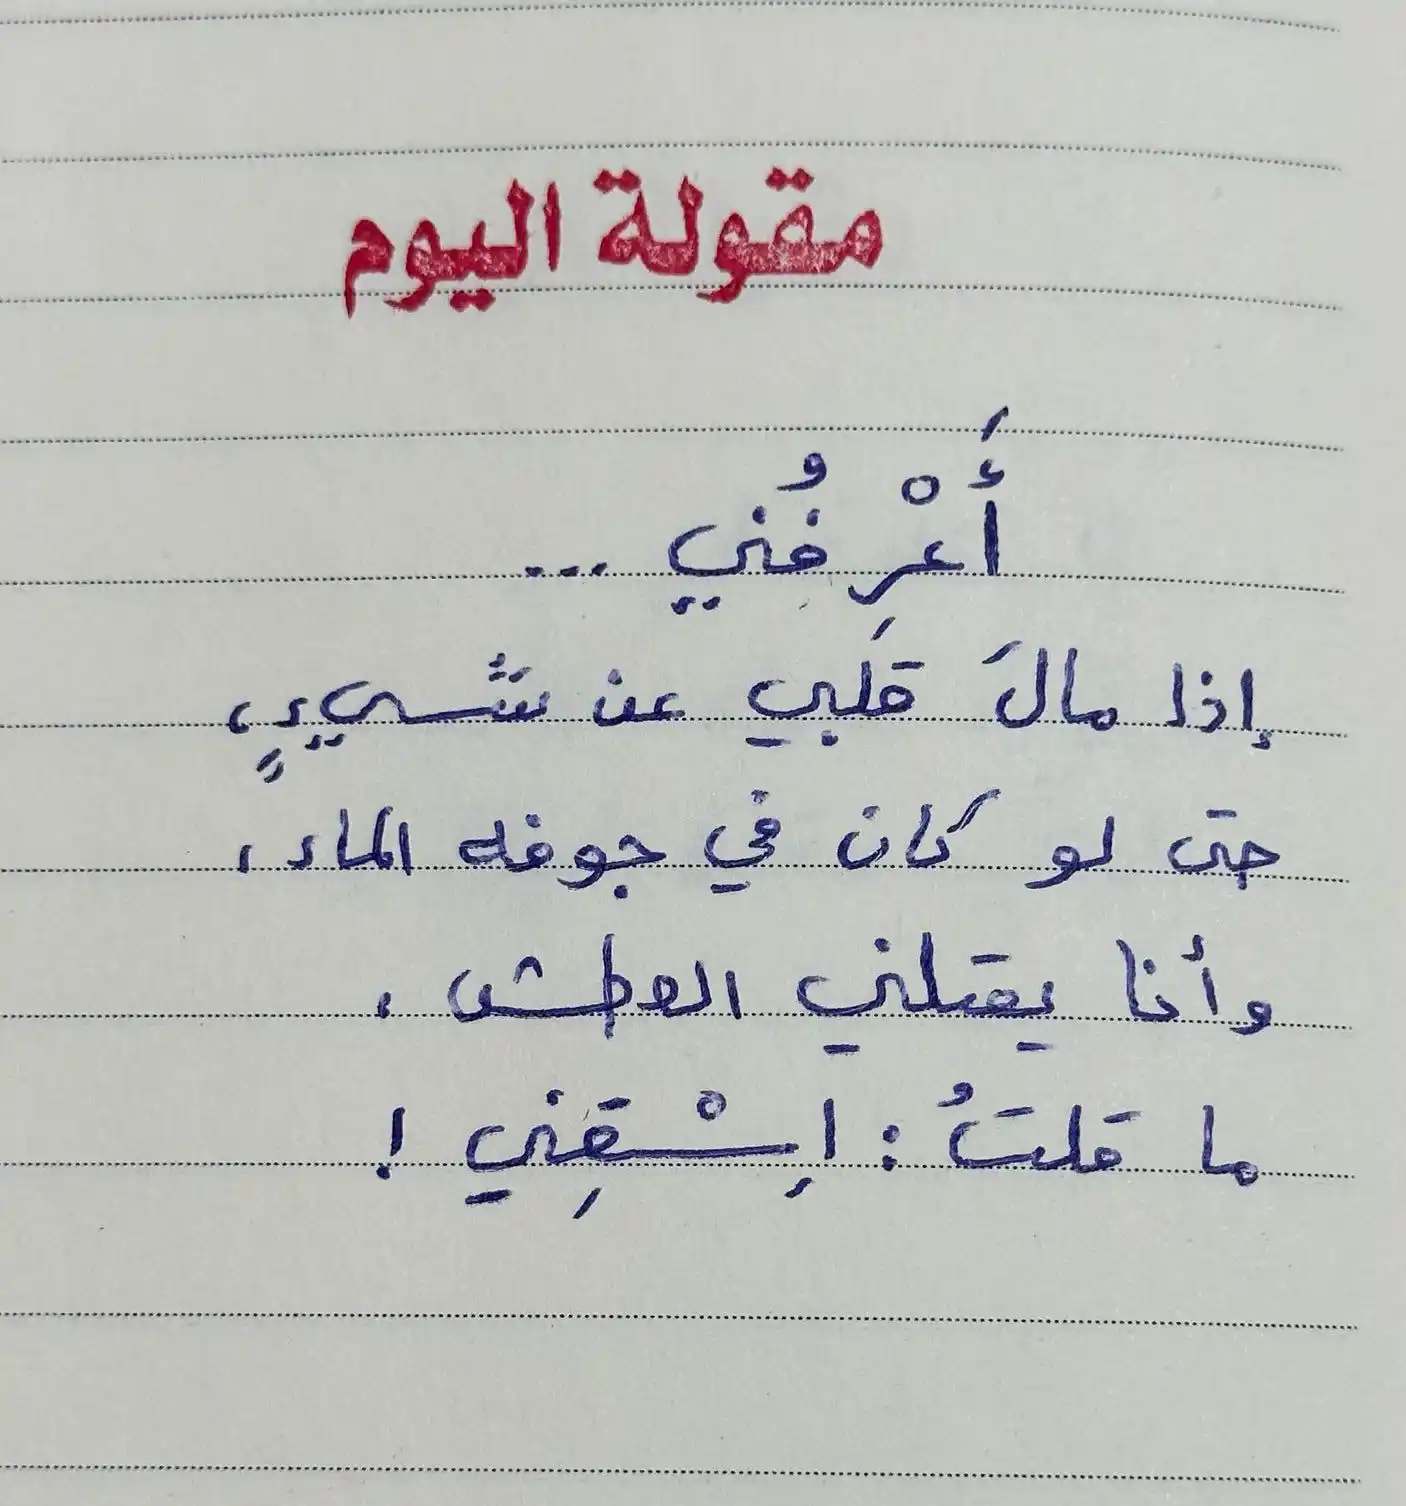 مقولة اليوم
أَعْرِفُني ...
إذا مالَ قَلبي عن شَيءٍ،
حتى لو كان في جوفه الماء،
وأنا يقتلني العطش،
ما قلتُ: اِسْقِني !